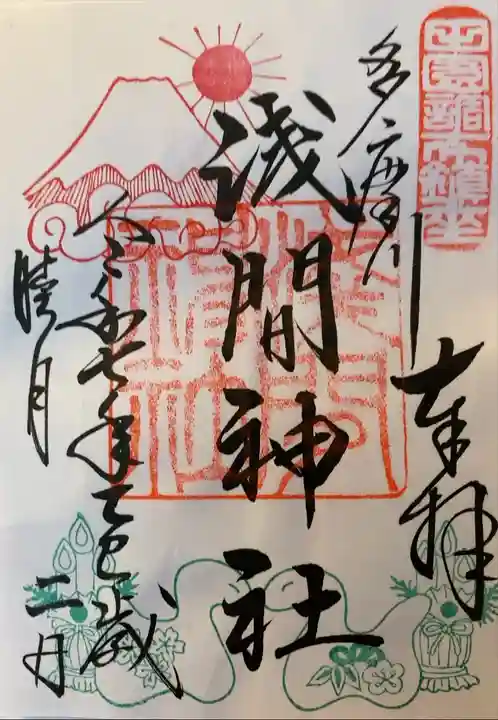 田園調布鎮座
奉拝
多摩川
浅間神社
令和七年乙巳歳
睦月
二日